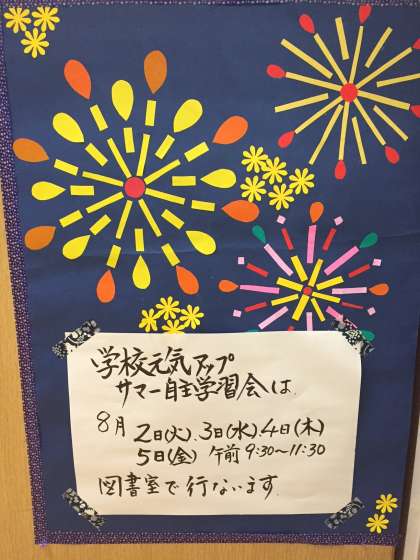 学校元気アップ
サマー自主学習会は
8月 2日(火).3日(水).4日(木)
5日(金) 午前9:30〜11:30
図書室で行ないます.